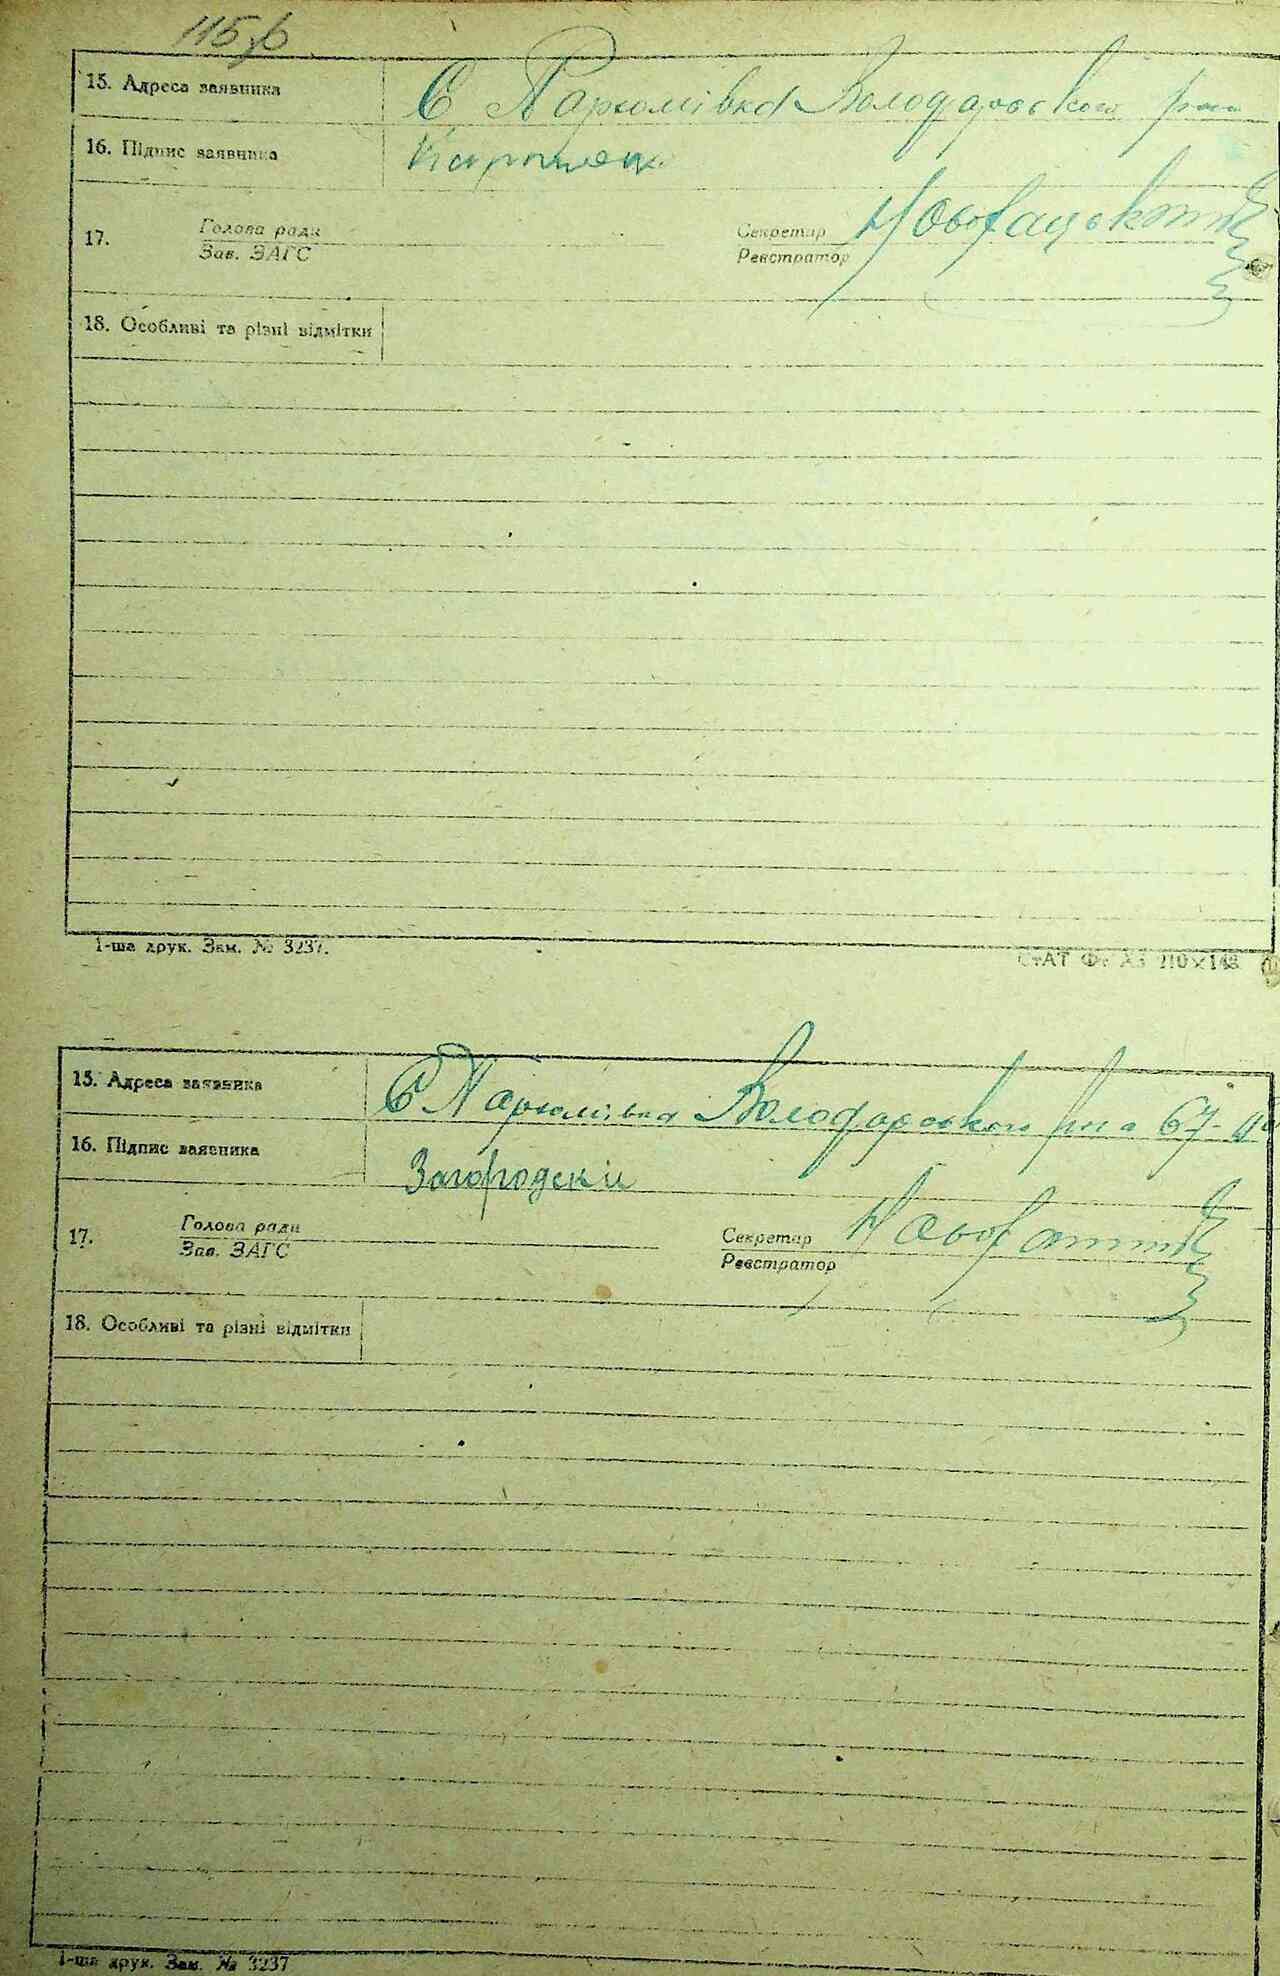 115
15. Адреса заявника С Пархомівка Володарського
16. Підпис заявника
17. Голова ради Секретар
Зав. ЗАГС Реєстратор
18. Особливі та різні відмітки
1-ша друк. Зам. № 3237.
210×148
15. Адреса заявника С Пархомівка Володарського
16. Підпис заявника Загородский
17. Голова ради Секретар
Зав. ЗАГС Реєстратор
18. Особливі та різні відмітки
1-ша друк. Зам. № 3237